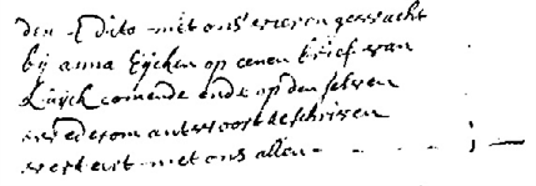 den dito met ons vieren gewacht
bij anna Eijcken op eenen brief van
Luijck comende ende op den selven
wederom antwoort beschriven
verteirt met ons allen - - - - j —